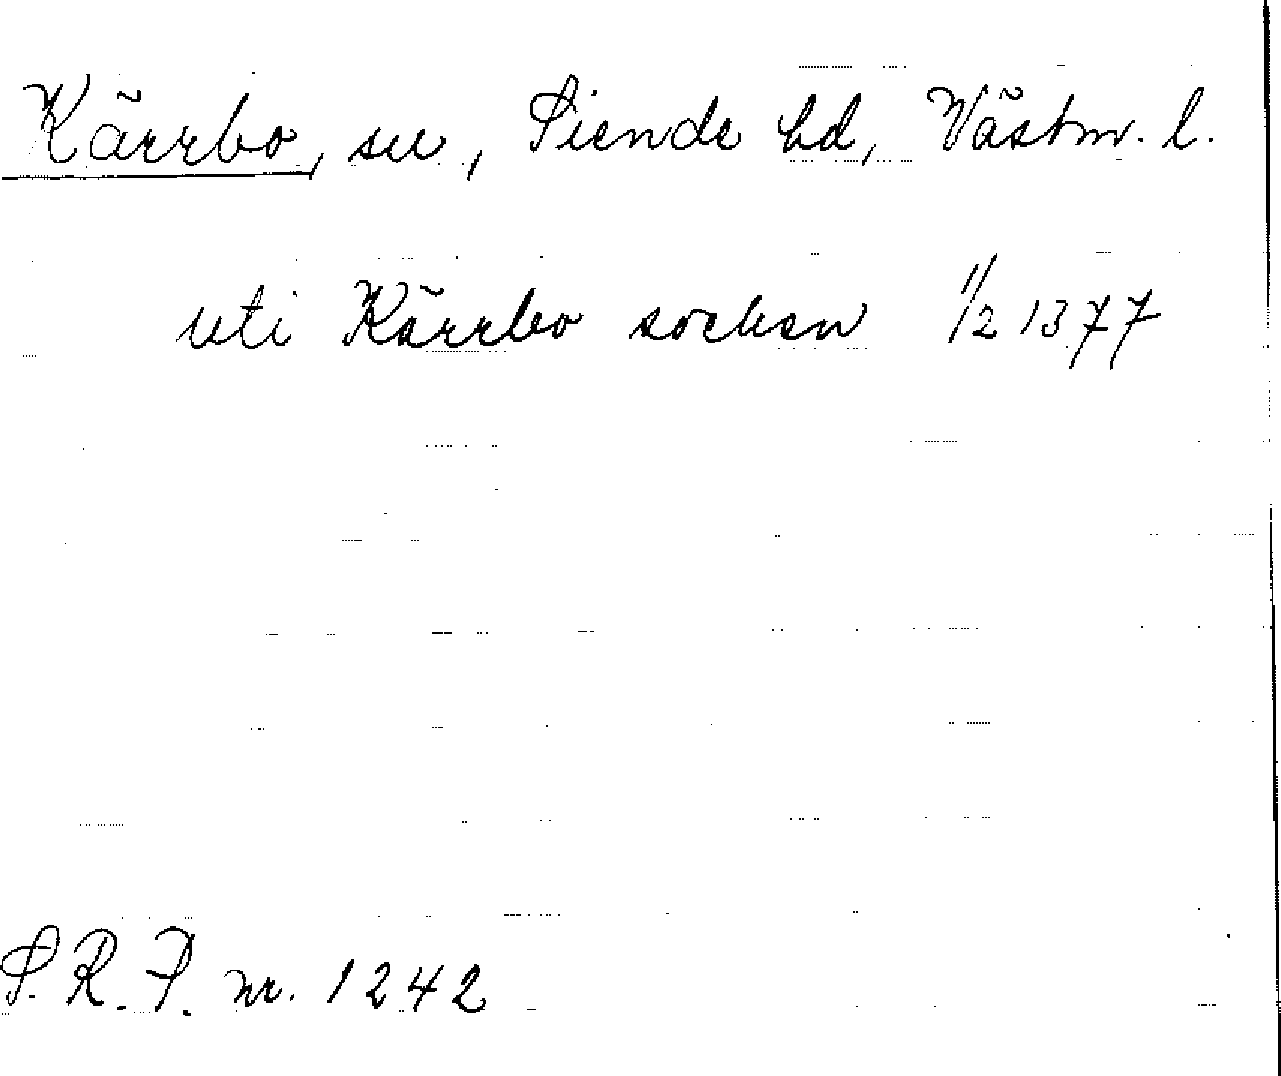 Kärrbo, sn, Siende hd, Västm. l.
uti Kärrbo socken 11/2 1377
S.R.P. nr. 1242